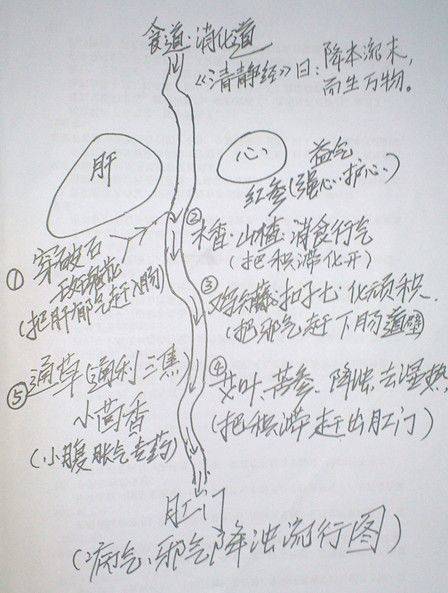 食道·消化道
《清静经》曰：降本流末，
而生万物。
肝
心
益气
红参(强心·护心·)
② 木香·山楂·消食行气
(把积滞化开)
① 穿破石
玫瑰花
(把肝郁气赶入肠)
③ 鸡矢藤·扣子七·化顽积·
(把邪气赶下肠道壁)
④ 艾叶、苦参、降浊、去湿热，
(把积滞赶出肛门)
⑤ 通草(通利三焦)
小茴香
(小腹胀气专药)
肛门
(病气、邪气降浊流行图)